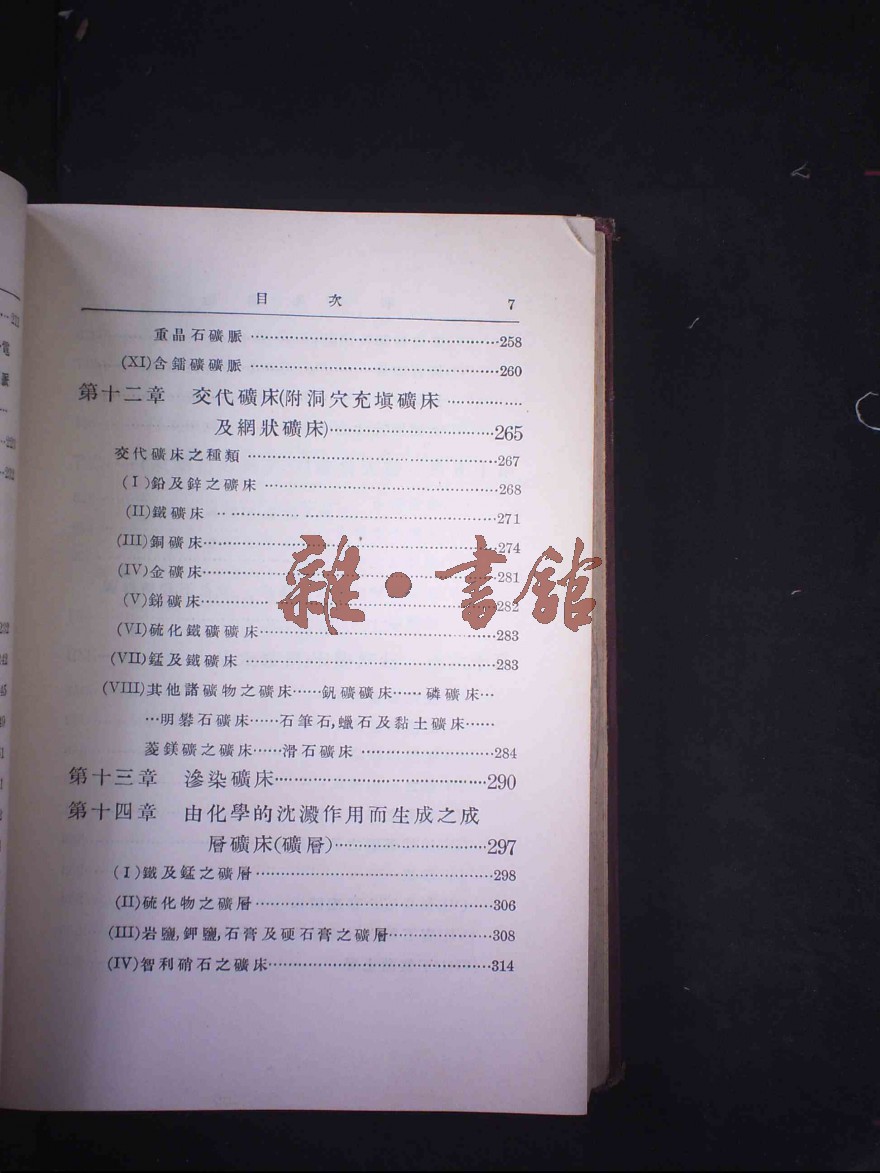 目 次 7
重晶石礦脈 ……………………………258
(XI)含鐳礦礦脈 ……………………………260
第十二章 交代礦床(附洞穴充塡礦床 ……………
及網狀礦床)……………………………265
交代礦床之種類 ……………………………267
(I)鉛及鋅之礦床 ……………………………268
(II)鐵礦床 ……………………………271
(III)銅礦床……………………………274
(IV)金礦床……………………………281
(V)銻礦床……………………………282
(VI)硫化鐵礦礦床……………………………283
(VII)錳及鐵礦床 ……………………………283
(VIII)其他諸礦物之礦床……釩礦礦床……磷礦床…
…明礬石礦床……石筆石,蠟石及黏土礦床……
菱鎂礦之礦床……滑石礦床 ………………284
第十三章 滲染礦床……………………………290
第十四章 由化學的沈澱作用而生成之成
層礦床(礦層)……………………………297
(I)鐵及錳之礦層……………………………298
(II)硫化物之礦層……………………………306
(III)岩鹽,鉀鹽,石膏及硬石膏之礦層………………308
(IV)智利硝石之礦床……………………………314
雜·書館